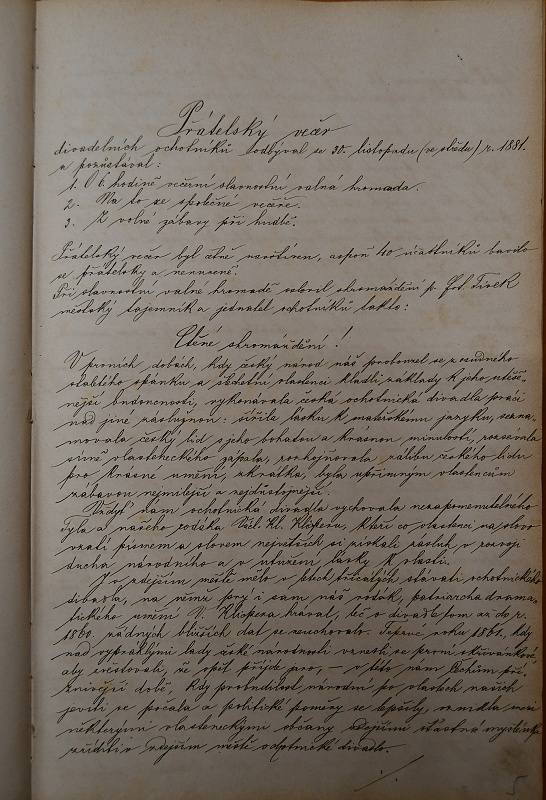 Přátelský večer
divadelních ochotníků odbýval se 30. listopadu (ve středu) r. 1881.
a pozůstával:
1. O 6. hodině večerní slavnostní valná hromada.
2. Na to se společné večeře.
3. Z volné zábavy při hudbě.
Přátelský večer byl četně navštíven, aspoň 40 účastníků bavilo
se přátelsky a nenuceně.
Při slavnostní valné hromadě oslovil shromáždění p. Jos.
městský tajemník a jednatel ochotníků takto:
Ctěné shromáždění!
V prvních dobách, kdy český národ náš probouzel se z osudného
staletého spánku a šlechetní vlastenci kladli základy k jeho utěše-
nější budoucnosti, vykonávala česká ochotnická divadla práci
nad jiné záslužnou: šířila lásku k mateřskému jazyku, sezna-
movala český lid s jeho bohatou a krásnou minulostí, rozsévala
símě vlasteneckého zápalu, rozhojňovala zálibu českého lidu
pro krásné umění, zkrátka, byla upřímným vlastencům
zábavou nejmilejší a nejdůstojnější.
Vždyť nám ochotnická divadla vychovala nezapomenutelného
Tyla a našeho rodáka Václ. Kl. Klicperu, kteří co vlastenci na slovo
vzatí písmem a slovem největších si získali zásluh o rozvoj
ducha národního a o utužení lásky k vlasti.
I v zdejším městě mělo v letech třicátých stávati ochotnické
divadlo, na němž prý i sám náš rodák, patriarcha drama-
tického umění V. Klicpera hrával, leč o divadle tom až do r.
1860. žádných bližších dat se nezachovalo. Teprve roku 1861. kdy
nad vyprahlými lady české národnosti vznesli se první skřivánkové,
aby zvěstovali, že opět přijde jaro, — v této nám Čechům pří-
znivější době, kdy probudilost národní po vlastech našich
jeviti se počala a politické poměry se lepšily, vznikla mezi
některými vlasteneckými občany zdejšími šťastná myšlénka
zříditi v zdejším městě ochotnické divadlo.
5